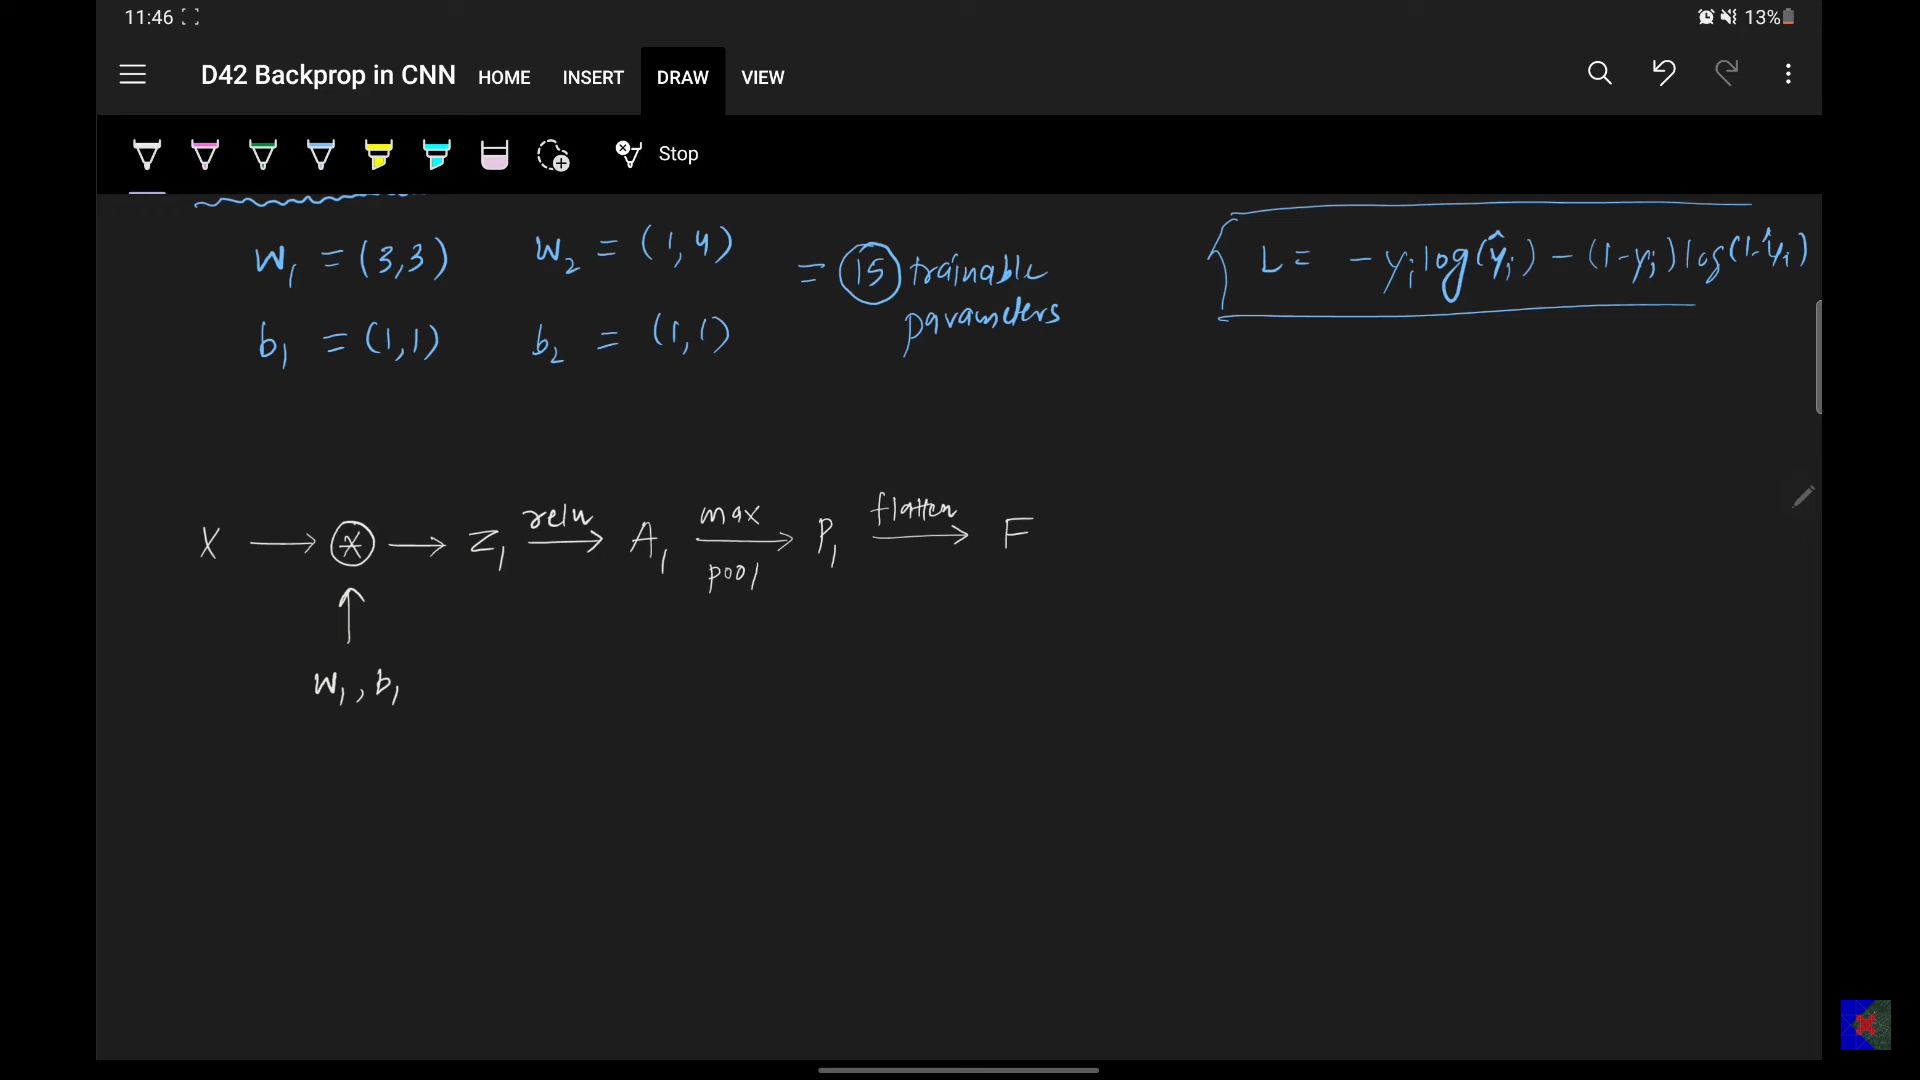 11:46 13%
D42 Backprop in CNN HOME INSERT DRAW VIEW
Stop
W₁ = (3,3) W₂ = (1,4) = 15 trainable parameters
b₁ = (1,1) b₂ = (1,1)
L = - yᵢ log(ŷᵢ) - (1-yᵢ) log(1-ŷᵢ)
X → * → Z₁ relu → A₁ max pool → P₁ flatten → F
↑
W₁, b₁